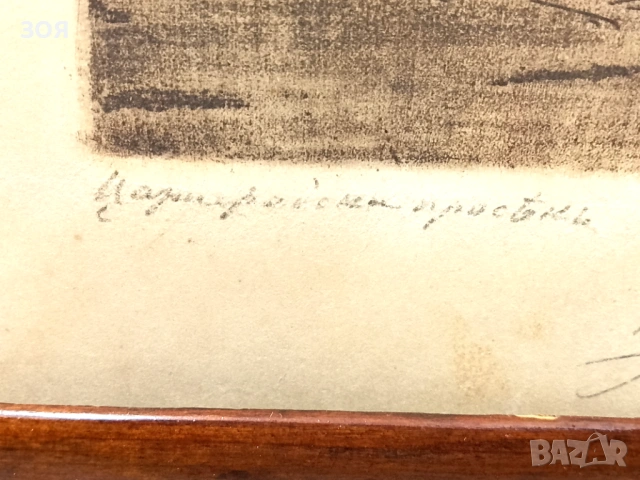 ЗОЯ
Цариградски просѣкъ
BAZAR